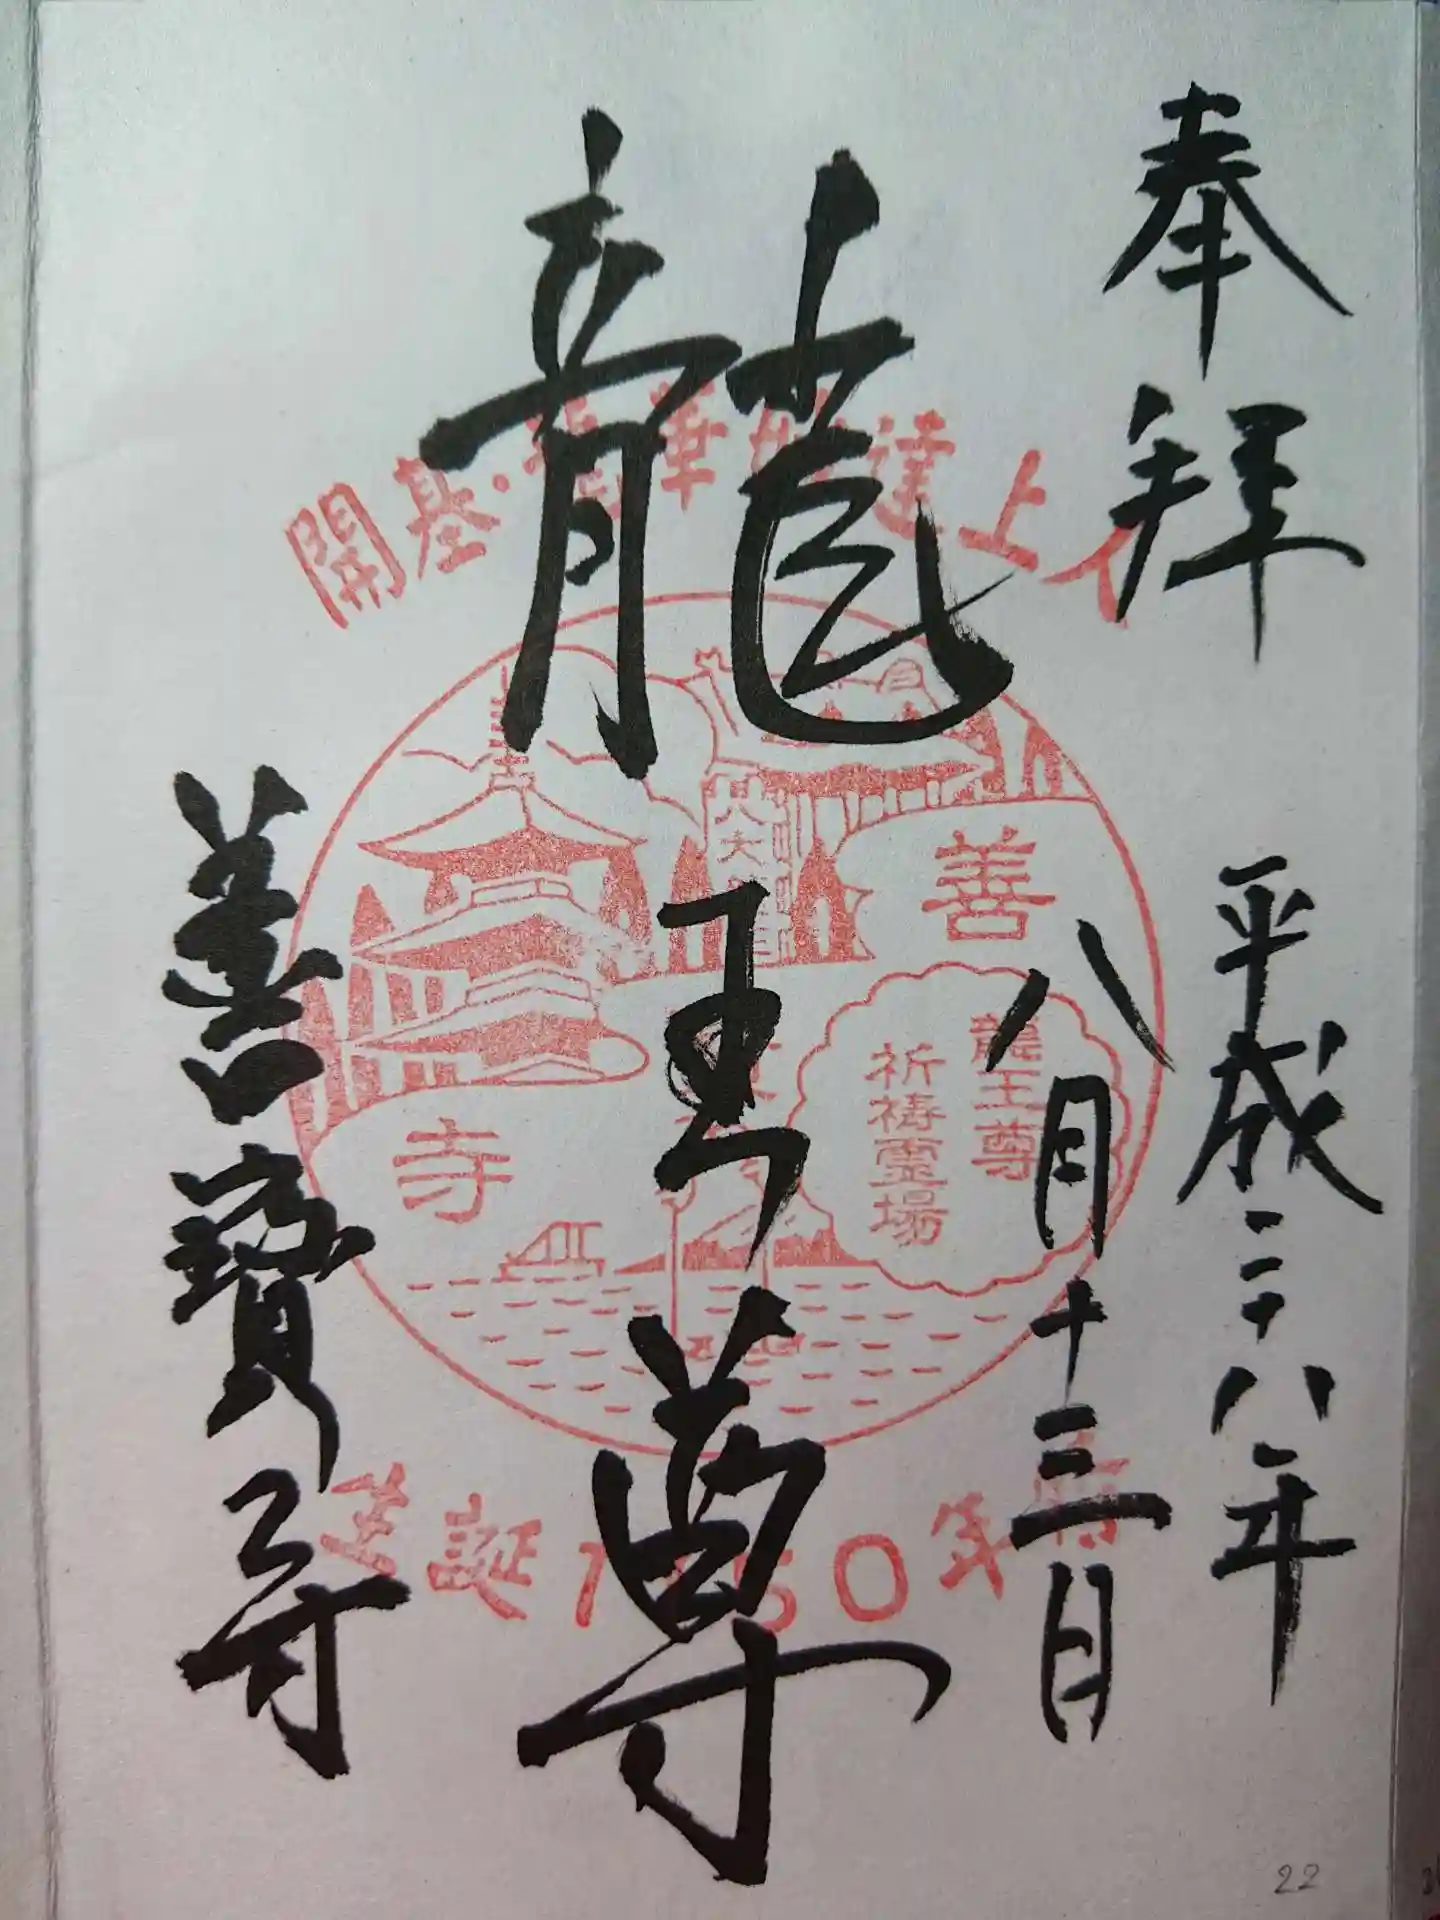 奉拜
平成二十八年
八月十三日
龍王尊
善寳寺
開基・龍華妙達上人
善
寺
龍王尊
祈祷霊場
八大龍王
生誕1150年
22